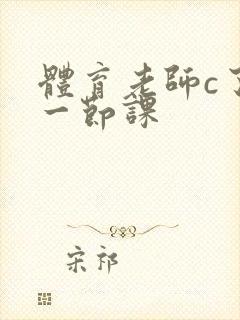 體育老師c了
一節課
宋祁